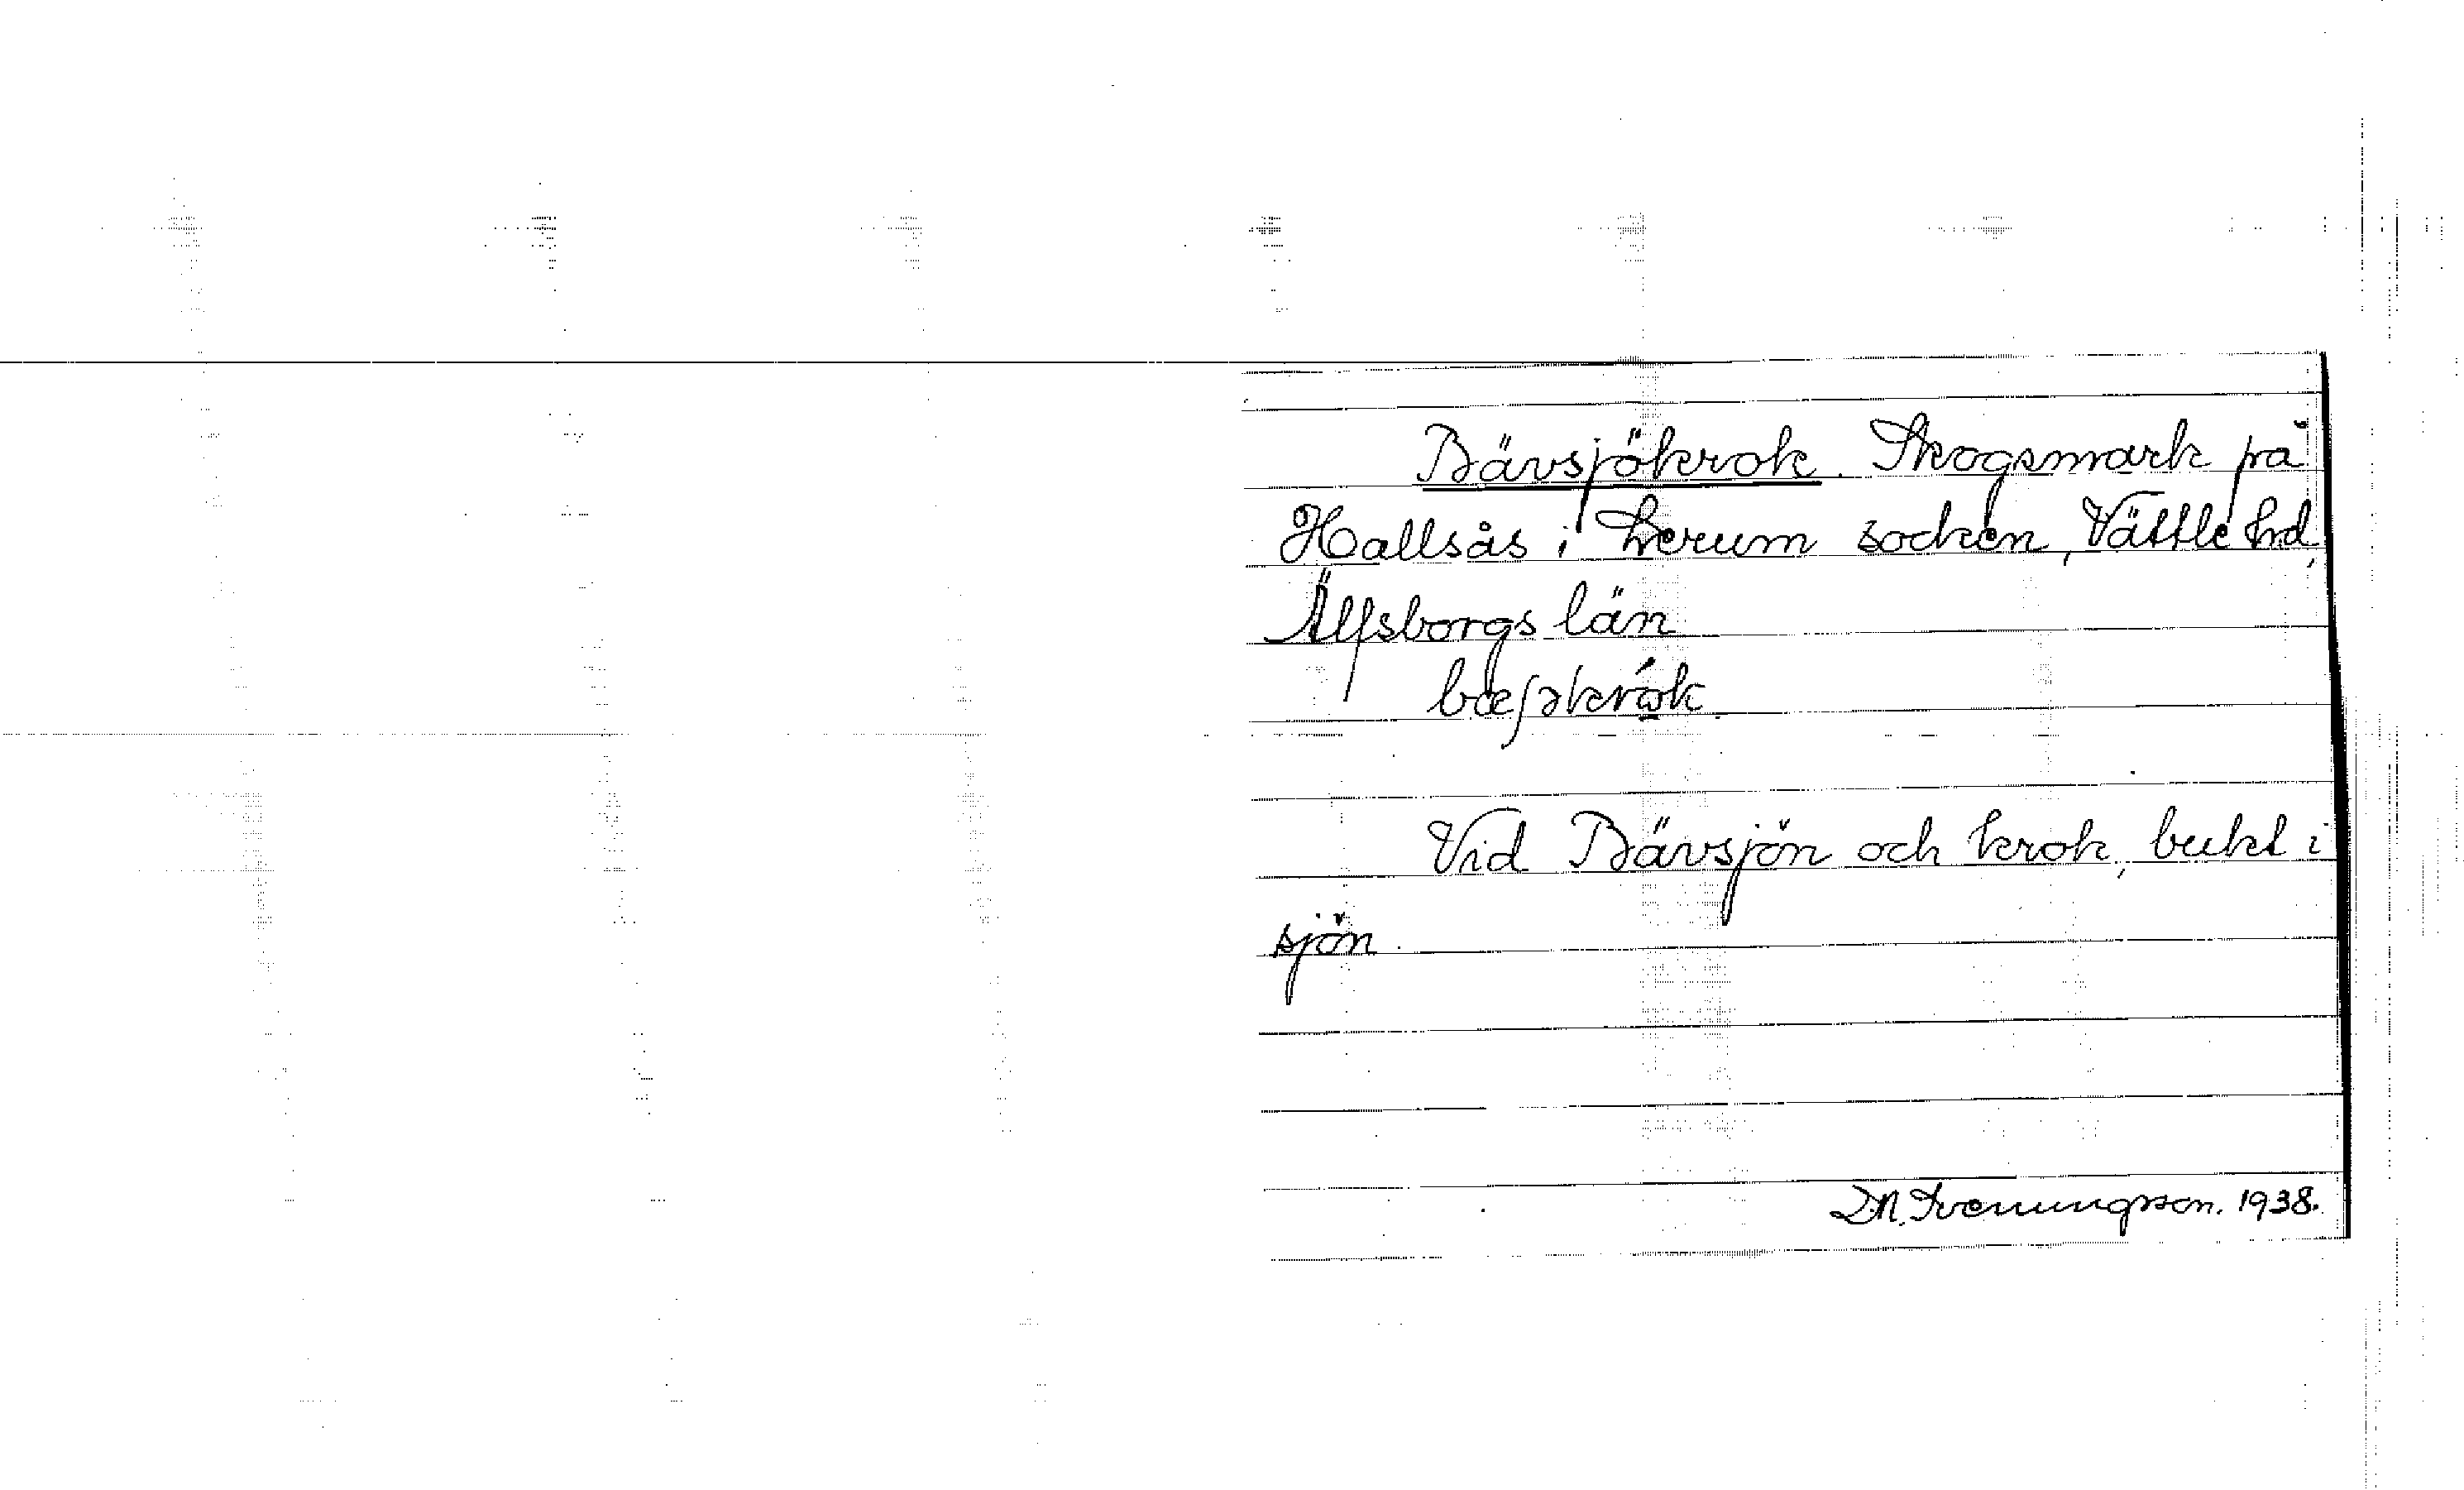 Bävsjökrok. Skogsmark på
Hallsås i Lerum socken, Vättle hd,
Älfsborgs län
bæʃəkrók.
Vid Bävsjön och krok, bukt i
sjön.
D.N. Svenningsson. 1938.